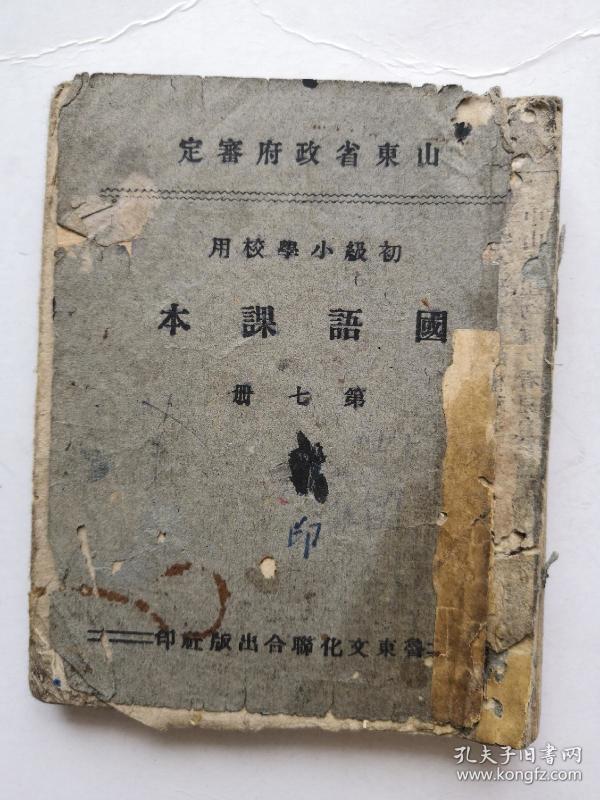 山東省政府審定
初級小學校用
國語課本
第七册
印
魯東文化聯合出版社印
孔夫子旧書网
www.kongfz.com